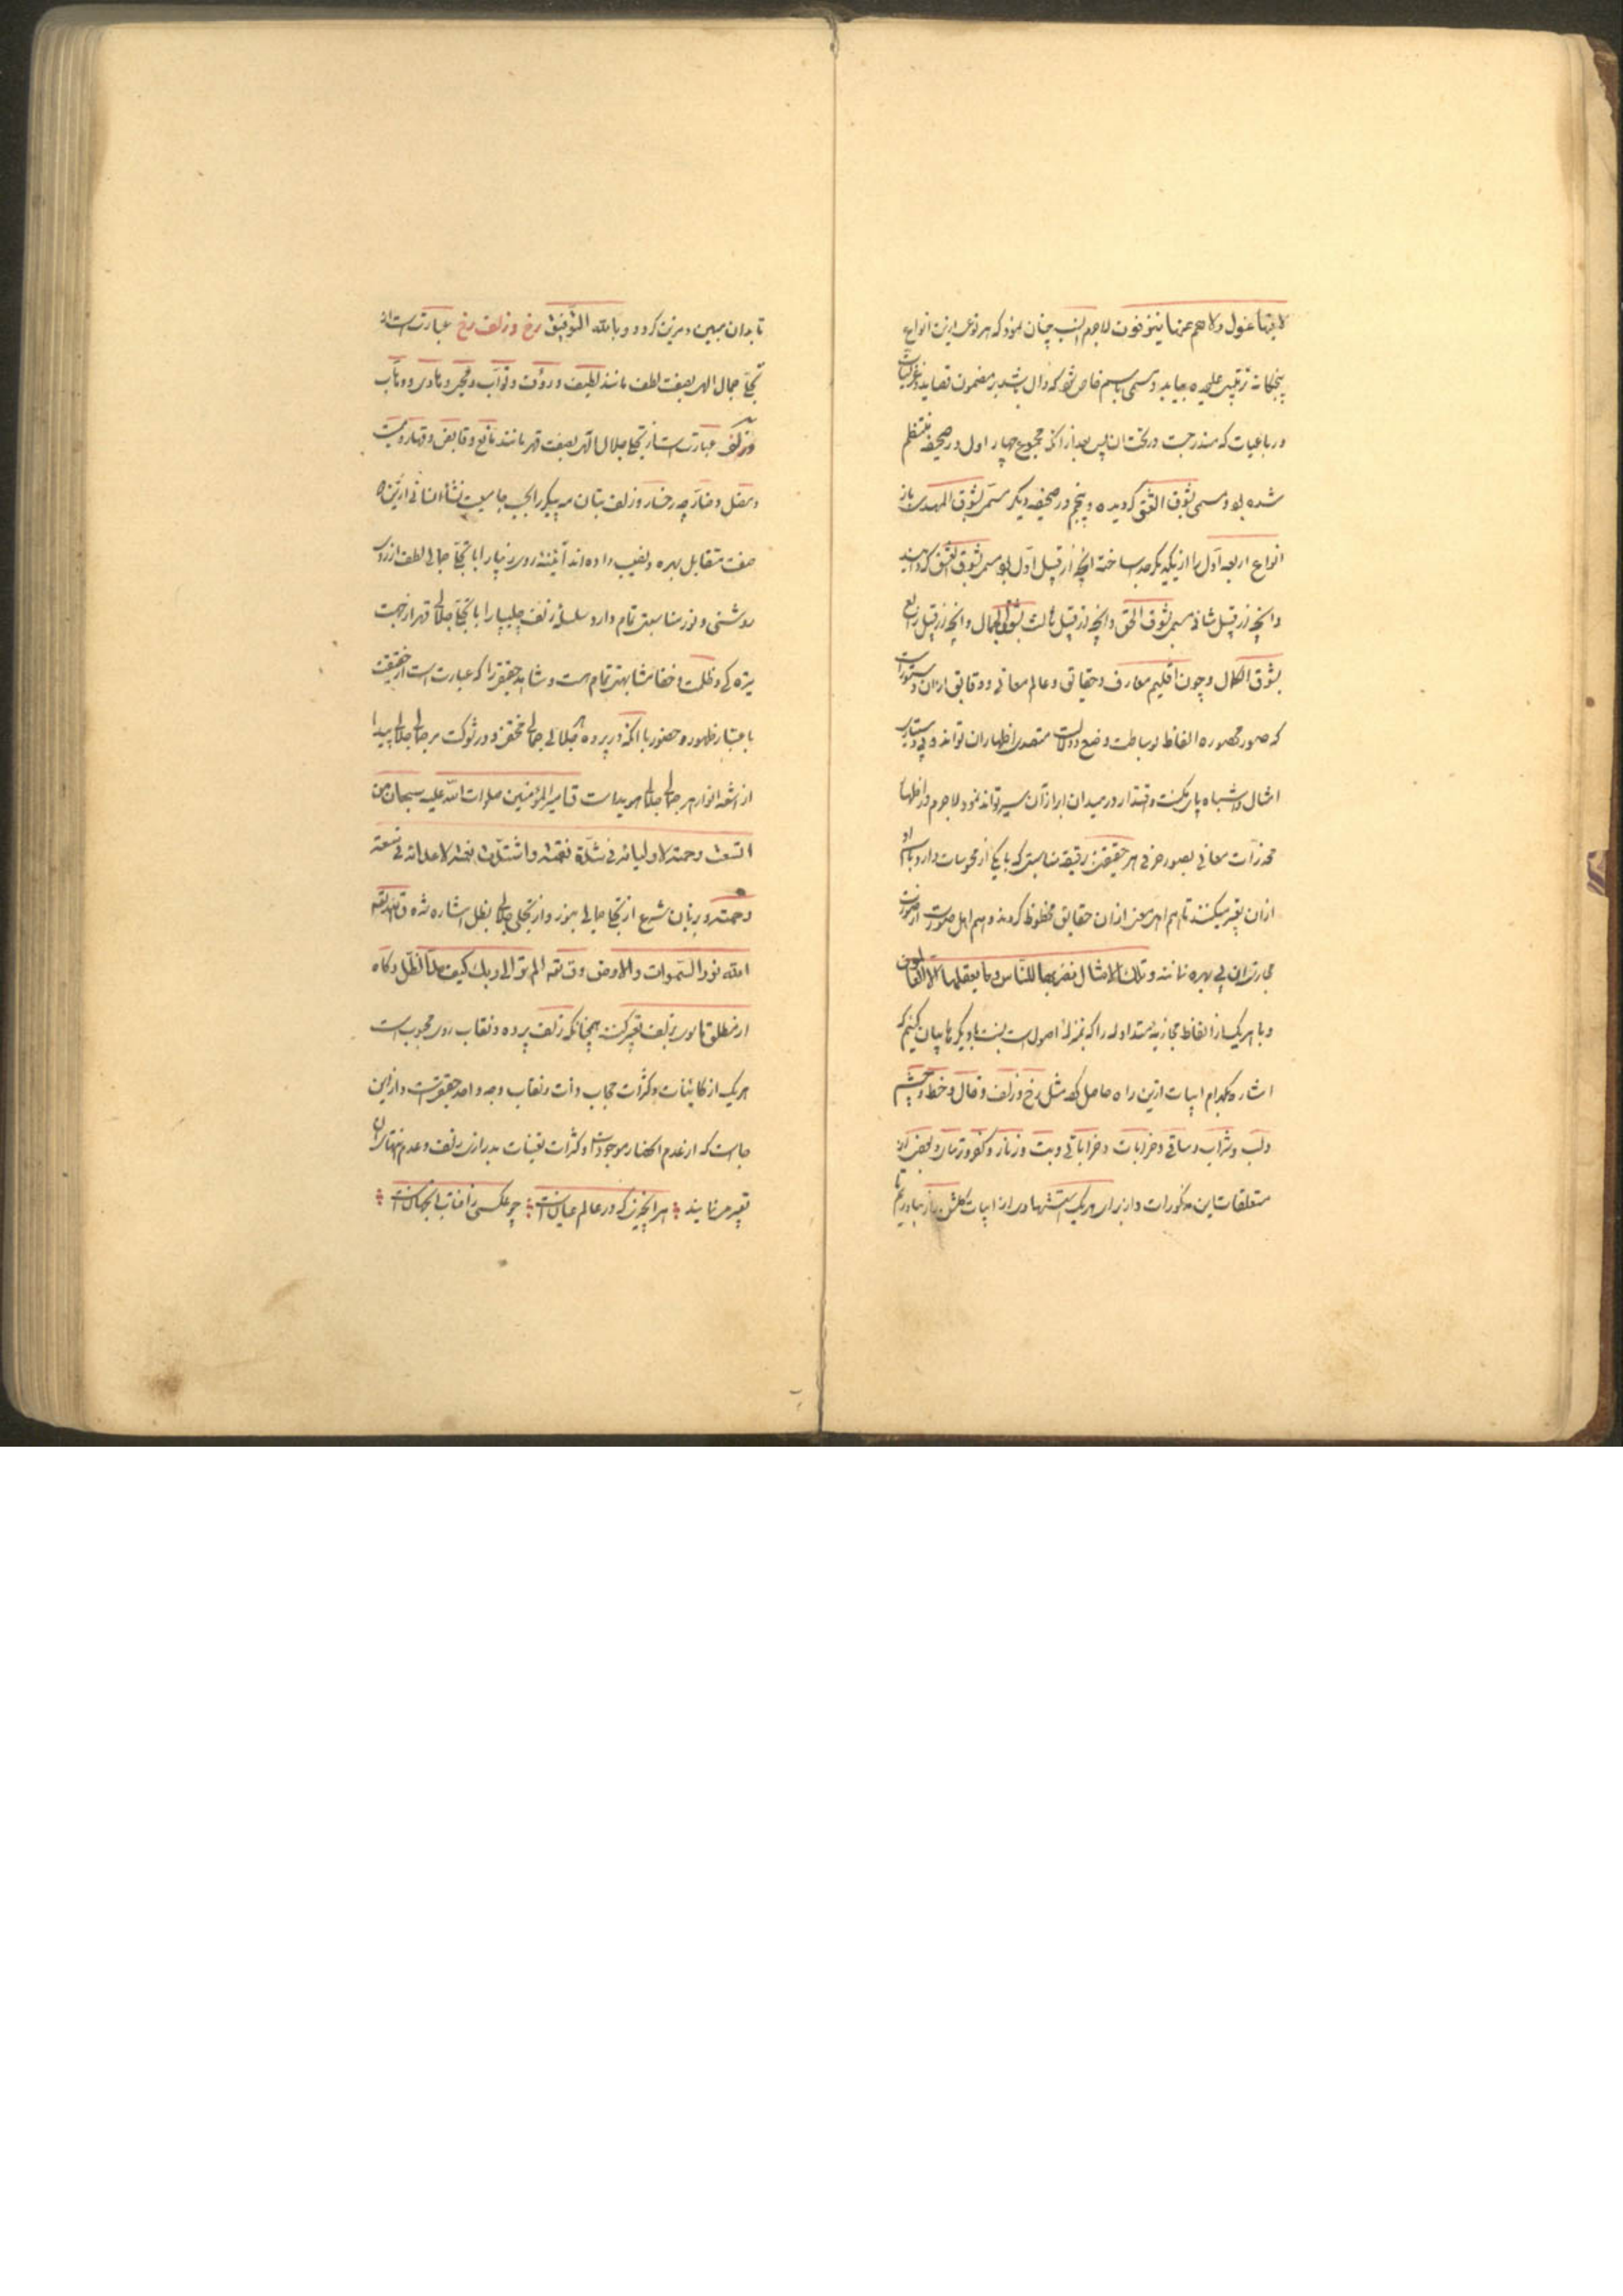 لا فیها غول ولا هم عنها ینزفون لاجرم انسب چنان نمود که هر نوعی ازین انواع
پنجگانه ترتیبی علیحده بیابد و مسمی باسم خاص شود که دال باشد بر مضمون قصاید و غزلیات
و رباعیات که مندرجست در تحت ان پس بعد از انکه مجموع چهار اول در صحیفه منتظم
شده بود و مسمی بشوق العشق گردیده و پنجم در صحیفه دیگر مسمی بشوق المهدی باز
انواع اربعه اول را از یکدیگر جدا ساخته انچه از قبیل اول بود مسمی بشوق العشق گردانید
و انچه از قبیل ثانی مسمی بشوق الحق و انچه از قبیل ثالث بشوق الجمال و انچه از قبیل رابع
بشوق الکمال و چون اقلیم معارف و حقایق و عالم معانی و دقایق
که صور محصوره الفاظ بوساطت وضع و دلالت متصدی اظهار ان تواند و بی دستیاری
امثال و اشباه پای مکنت و اقتدار در میدان ابراز آن سیر تواند نمود لاجرم در اظهار
مخدرات معانی بصور حرفی هر حقیقتی رقیقه مناسبتی که با یکی از محسوسات دارد باسم او
ازان تعبیر میکنند تا هم اهل معنی ازان حقایق محظوظ گردند و هم اهل صورت از صورت
مجازی ان بی بهره نمانند و تلك الامثال نضربها للناس وما یعقلها الا العالمون
و با هر یک از الفاظ مجازیه متداوله را که بمنزله اصول است نسبت با دیگرها بیان کنیم که
اشاره بکدام ابیات ازین راه حاصل کرد مثل رخ و زلف و خال و خط و چشم
و لب و شراب و ساقی و خرابات و خراباتی و بت و زنار و کفر و ترسا و بعضی از
متعلقات این مذکورات و از برای هر یک استشهادی از ابیات گلشن راز بیاوریم تا
تا بدان مبین و مزین گردد و بالله التوفیق رخ و زلف رخ عبارت است از
تجلی جمال الهی بصفت لطف مانند لطیف و رؤف و تواب و محیی و هادی و وهاب
و زلف عبارت است از تجلی جلال الهی بصفت قهر مانند مانع و قابض و قهار و ممیت
و مضل و ضار چه رخسار و زلف بتان مه پیکر را بحسب جامعیت نشأه انسانی ازین
صفت متقابل بهره و نصیب داده اند آینه روی زیبا را با تجلی جمالی لطف از روی
روشنی و نور مناسبتی تمام دارد و سلسله زلف چلیپا را با تجلی جلالی قهر از جهت
تیره گی و ظلمت و خفا مشابهتی تمام هست و شاهد حقیقی را که عبارت است از حقیقت
باعتبار ظهور و حضور با انکه در پرده هر جلالی جمالی مخفی و در شوکت هر جمالی جلالی پیدا
از اشعه انوار هر جمالی جلالی هویداست قال امیر المؤمنین صلوات الله علیه سبحان من
اتسعت رحمته لاولیائه فی شدة نقمته واشتدت نقمته لاعدائه فی سعة
رحمته و بزبان شرع از تجلی جمالی بنور و از تجلی جلالی بظل اشاره شده قال الله تعالی
الله نور السموات والارض وقال تعالی الم تر الی ربك کیف مد الظل و گاه
از مطلق ماسوی بزلف تعبیر کنند همچنانکه زلف پرده و نقاب روی محبوب است
هر یک از کاینات و کثرات حجاب ذات و نقاب وجه واحد حقیقیست و ازین
جاست که از عدم انحصار موجودات و کثرات تعینات بدرازی زلف و عدم نهایت ان
تعبیر می نمایند هر انچیزی که در عالم عیانست چو عکسی ز آفتاب انجهانست